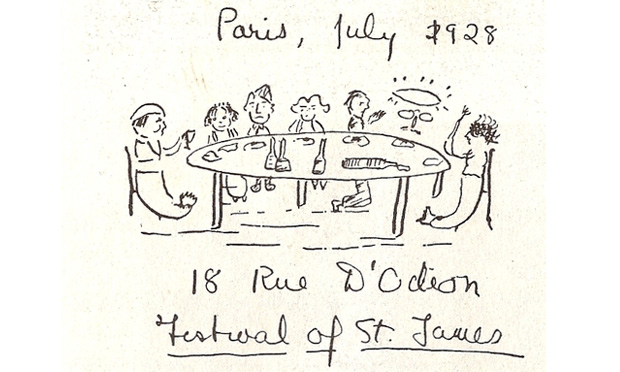 Paris, July 1928
18 Rue D'Odeon
Festival of St. James